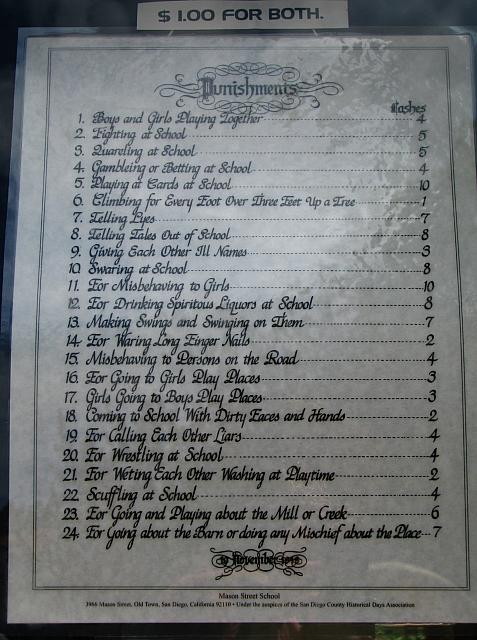 $ 1.00 FOR BOTH.
Punishments
Lashes
1. Boys and Girls Playing Together 4
2. Fighting at School 5
3. Quareling at School 5
4. Gambleing or Betting at School 4
5. Playing at Cards at School 10
6. Climbing for Every Foot Over Three Feet Up a Tree 1
7. Telling Lyes 7
8. Telling Tales Out of School 8
9. Giving Each Other Ill Names 3
10. Swaring at School 8
11. For Misbehaving to Girls 10
12. For Drinking Spiritous Liquors at School 8
13. Making Swings and Swinging on Them 7
14. For Waring Long Finger Nails 2
15. Misbehaving to Persons on the Road 4
16. For Going to Girls Play Places 3
17. Girls Going to Boys Play Places 3
18. Coming to School With Dirty Faces and Hands 2
19. For Calling Each Other Liars 4
20. For Wrestling at School 4
21. For Weting Each Other Washing at Playtime 2
22. Scuffling at School 4
23. For Going and Playing about the Mill or Creek 6
24. For Going about the Barn or doing any Mischief about the Place 7
November
Mason Street School
3966 Mason Street, Old Town, San Diego, California 92110 • Under the auspices of the San Diego County Historical Days Association